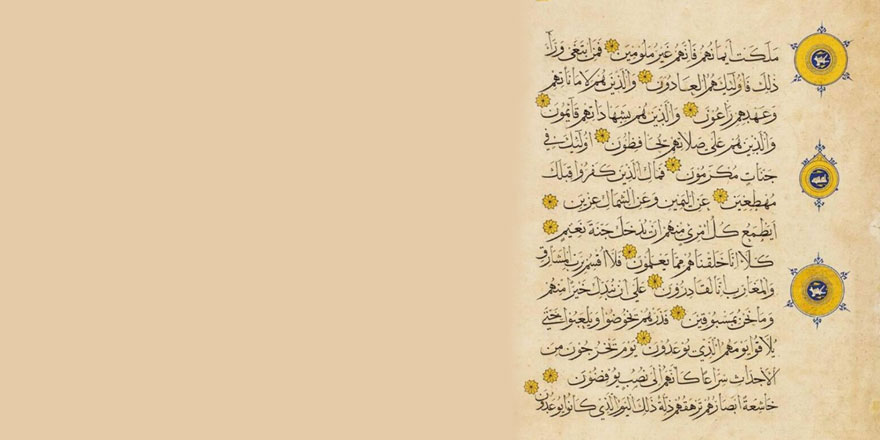 ملكت أيمانهم فإنهم غير ملومين فمن ابتغى وراء
ذلك فأولئك هم العادون والذين هم لأماناتهم
وعهدهم راعون والذين هم بشهاداتهم قائمون
والذين هم على صلاتهم يحافظون أولئك في
جنات مكرمون فمال الذين كفروا قبلك
مهطعين عن اليمين وعن الشمال عزين
أيطمع كل امرئ منهم أن يدخل جنة نعيم
كلا إنا خلقناهم مما يعلمون فلا أقسم برب المشارق
والمغارب إنا لقادرون على أن نبدل خيرا منهم
وما نحن بمسبوقين فذرهم يخوضوا ويلعبوا حتى
يلاقوا يومهم الذي يوعدون يوم يخرجون من
الأجداث سراعا كأنهم إلى نصب يوفضون
خاشعة أبصارهم ترهقهم ذلة ذلك اليوم الذي كانوا يوعدون